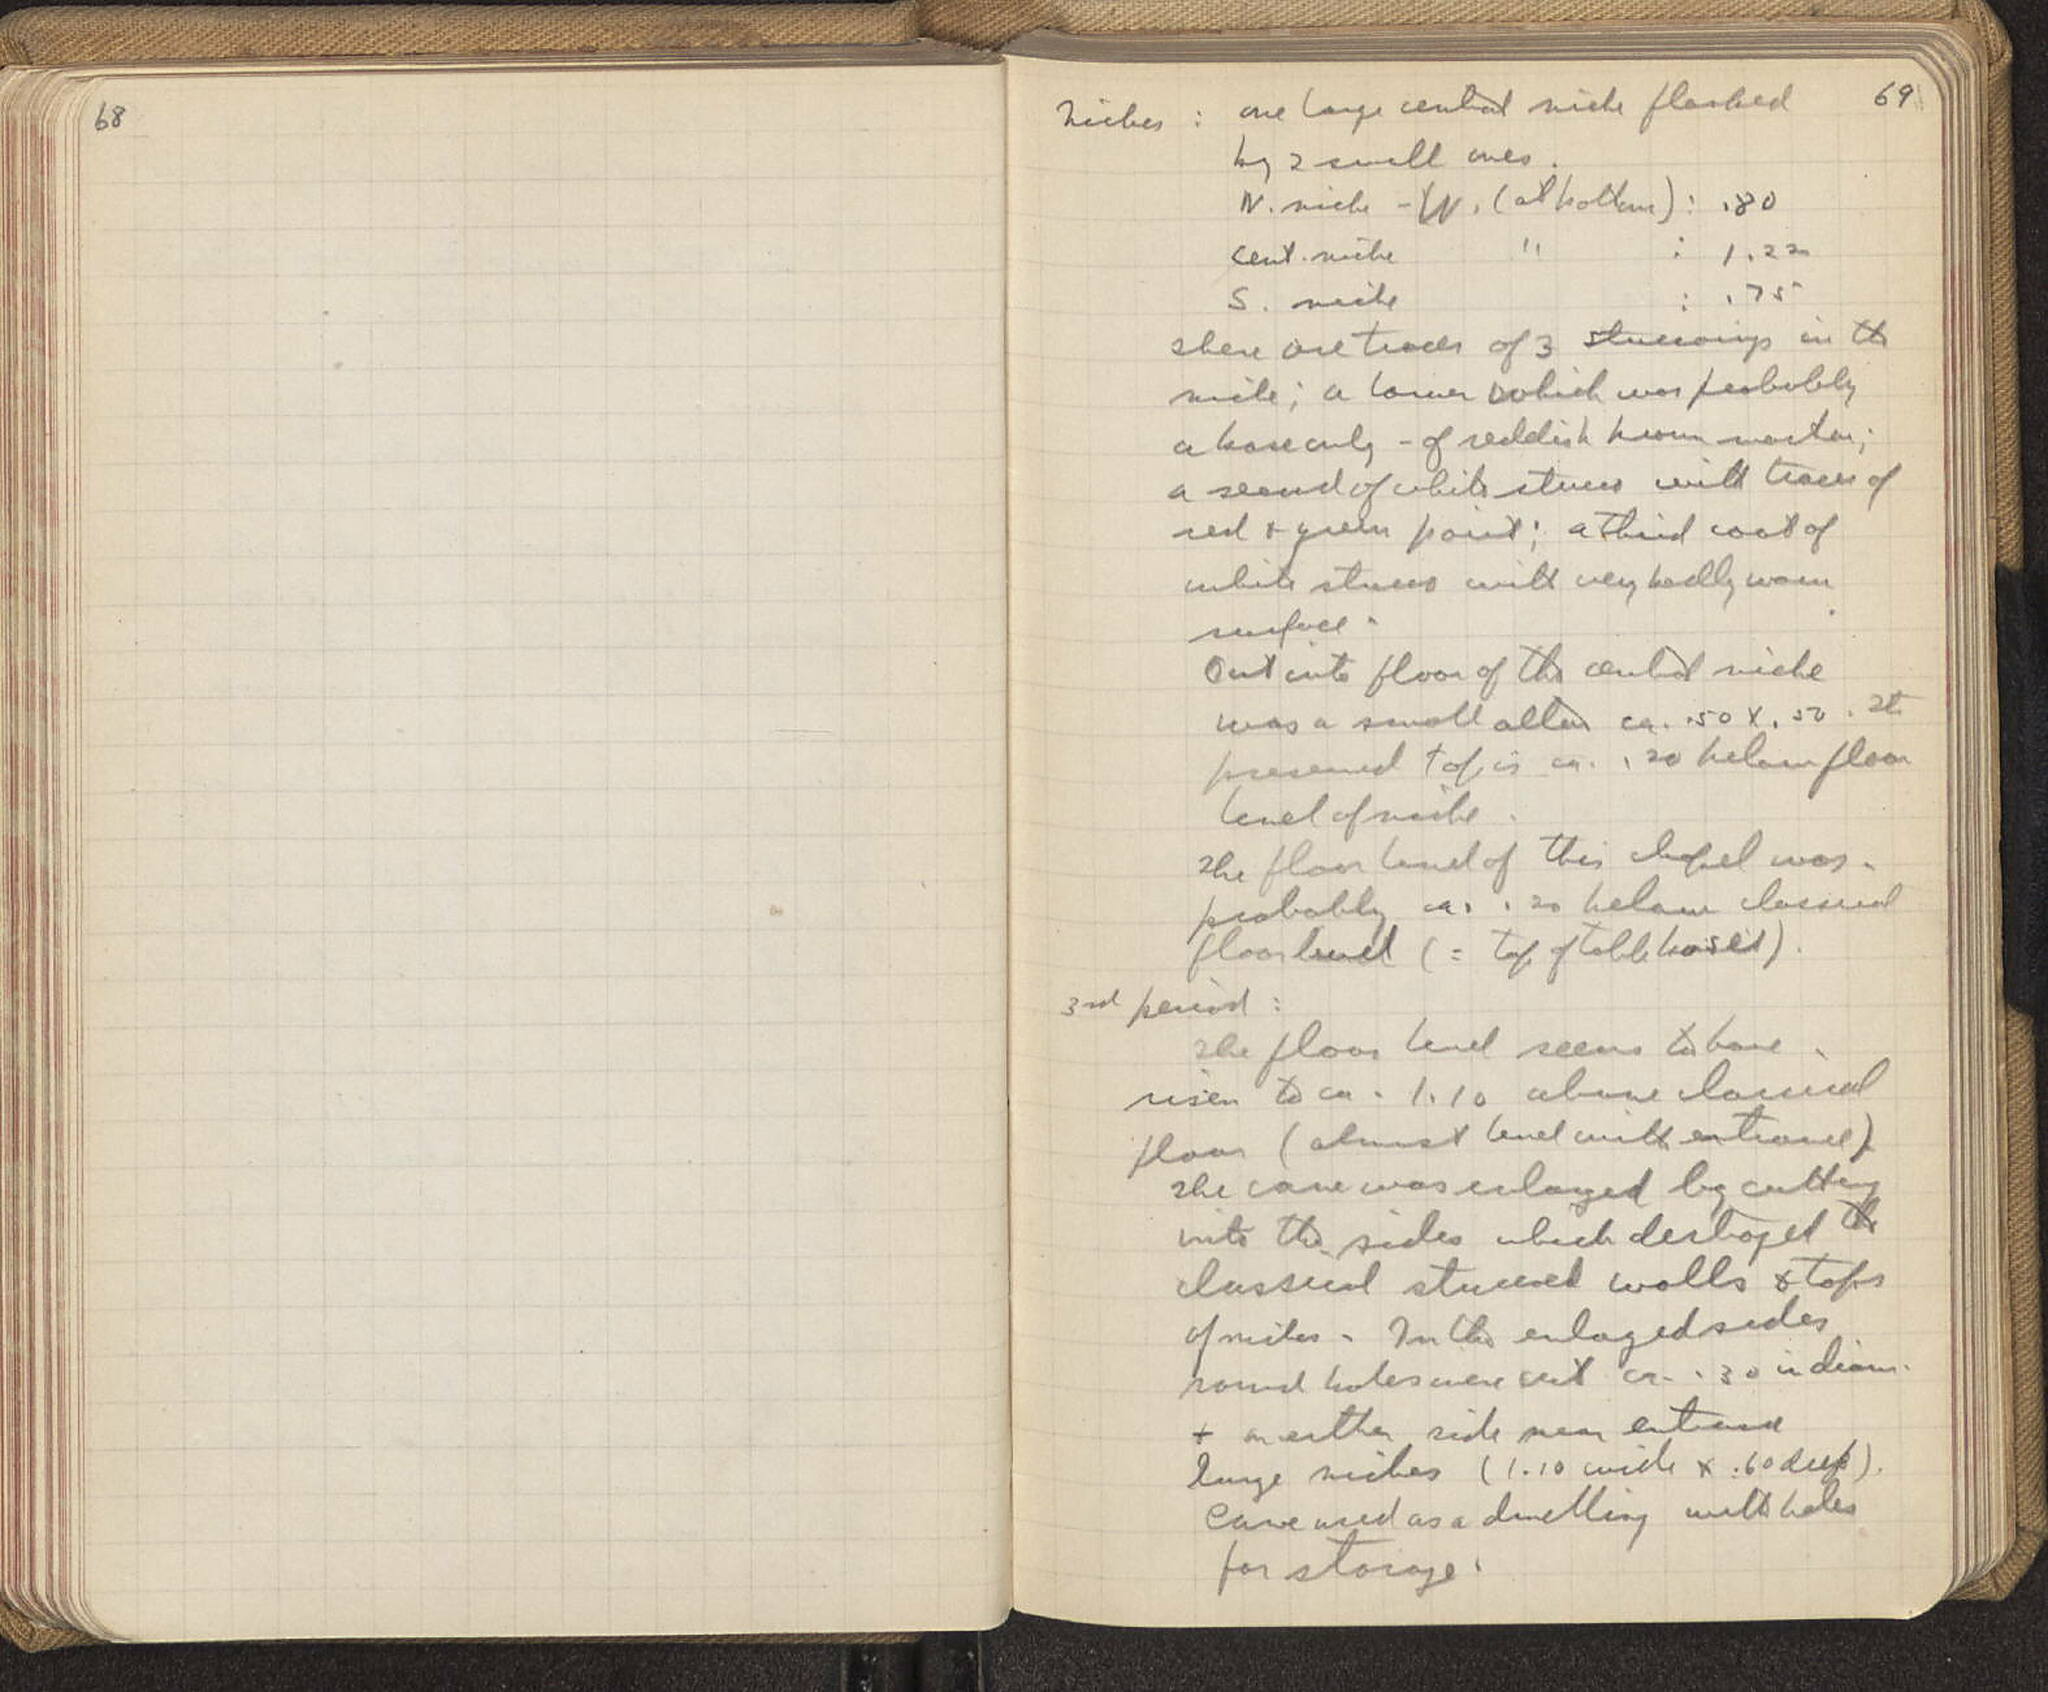 68
69
Niches : one large central niche flanked
by 2 small ones.
N. niche - W. (at bottom) : .80
Cent. niche " : 1.22
S. niche : .75
There are traces of 3 stuccoings in the
niche; a lower which was probably
a base only - of reddish brown mortar;
a second of white stucco with traces of
red + green paint; a third coat of
white stucco with very badly worn
surface.
Cut into floor of the central niche
was a small altar ca. .50 x .50. Its
preserved top is ca. .20 below floor
level of niche.
The floor level of this chapel was
probably ca. .20 below classical
floor level (= top of table bases).
3rd period :
The floor level seems to have
risen to ca. 1.10 above classical
floor (almost level with entrance).
The cave was enlarged by cutting
into the sides which destroyed the
classical stuccoed walls & tops
of niches. In the enlarged sides
round holes were cut ca. .30 in diam.
+ on either side near entrance
large niches (1.10 wide x .60 deep).
Cave used as a dwelling with holes
for storage.